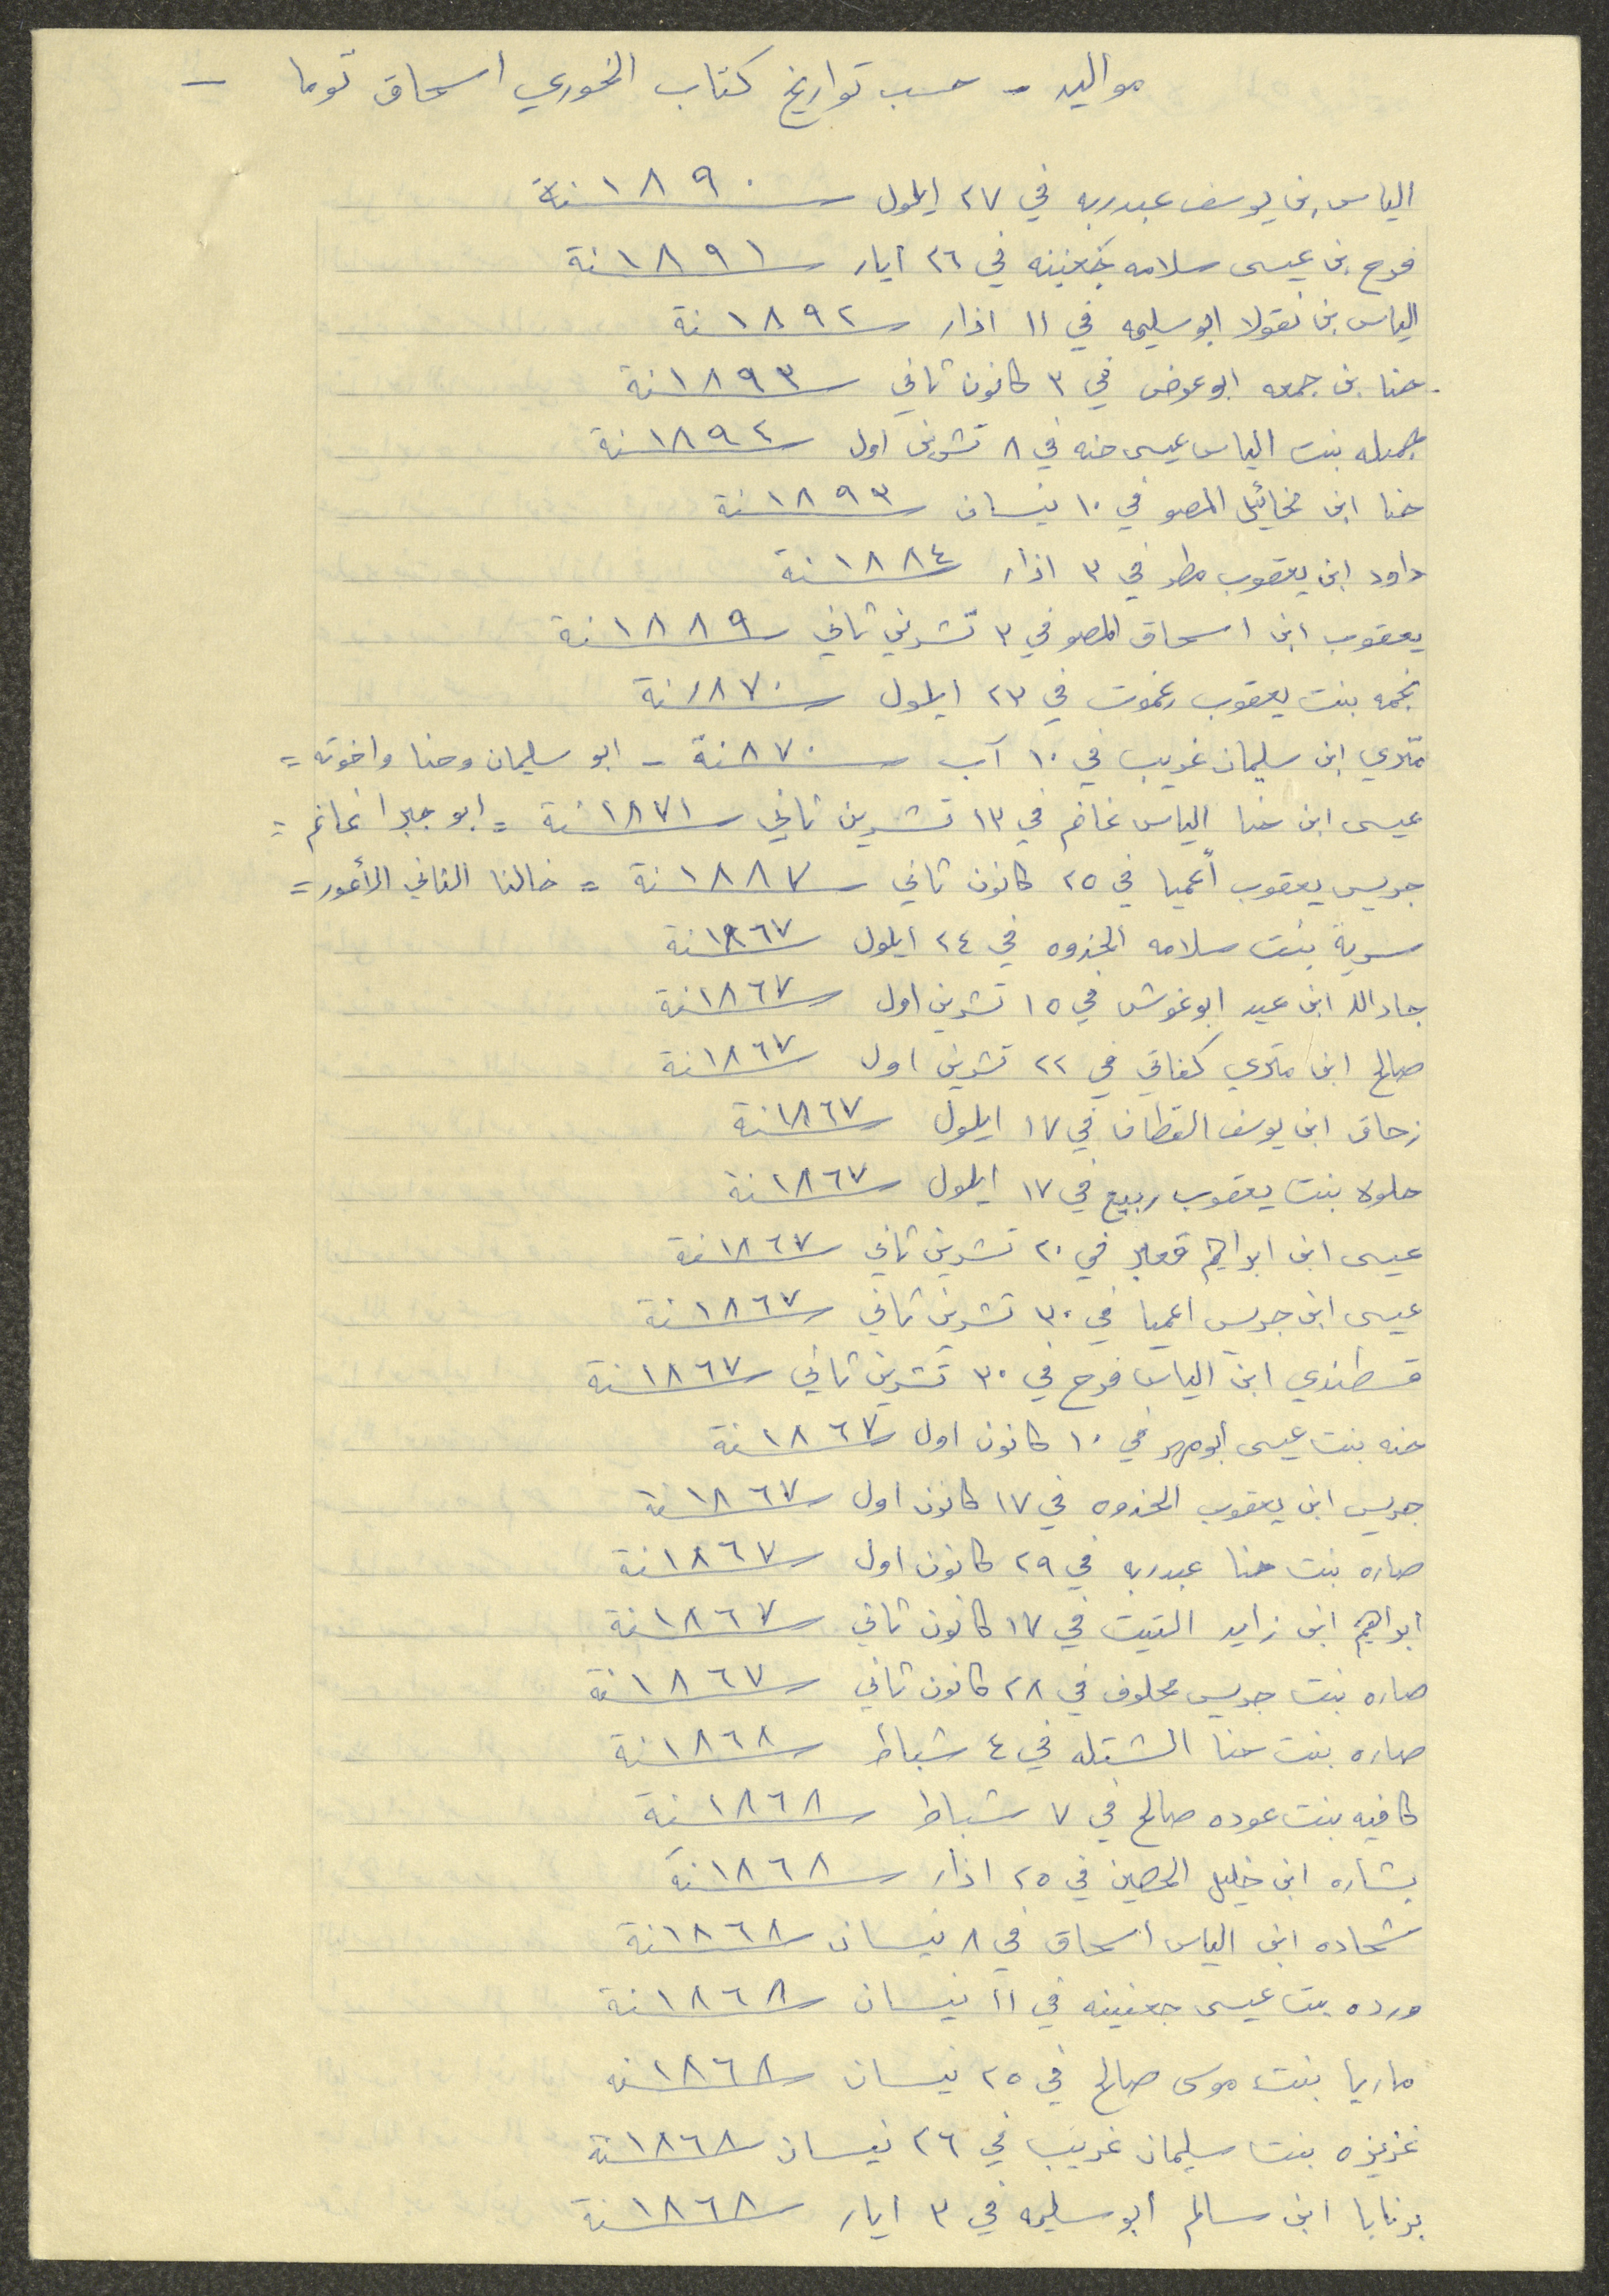 مواليد - حسب تواريخ كتاب الخوري اسحاق توما -
الياس بن يوسف عبدربه في ٢٧ ايلول سنة ١٨٩٠
فرح بن عيسى سلامه جعنينه في ٢٦ ايار سنة ١٨٩١
الياس بن نقولا ابو سليمه في ١١ اذار سنة ١٨٩٢
حنا بن جمعه ابو عوض في ٣ كانون ثاني سنة ١٨٩٣
جميله بنت الياس عيسى حنه في ٨ تشرين اول سنة ١٨٩٤
حنا ابن مخائيل المصو في ١٠ نيسان سنة ١٨٩٣
داود ابن يعقوب مطر في ٣ اذار سنة ١٨٨٤
يعقوب ابن اسحاق المصو في ٣ تشرين ثاني سنة ١٨٨٩
نجمه بنت يعقوب رغموت في ٢٣ ايلول سنة ١٨٧٠
متري ابن سليمان غريب في ١٠ آب سنة ٨٧٠ - ابو سليمان وحنا واخوته =
عيسى ابن حنا الياس غانم في ١٣ تشرين ثاني سنة ١٨٧١ = ابو جبرا غانم =
جريس يعقوب أعميا في ٢٥ كانون ثاني سنة ١٨٨٧ = خالنا الثاني الأعور =
سرية بنت سلامه الجذوه في ٢٤ ايلول سنة ١٨٦٧
جادالله ابن عيد ابو غوش في ١٥ تشرين اول سنة ١٨٦٧
صالح ابن متري كفاتي في ٢٢ تشرين اول سنة ١٨٦٧
زحاق ابن يوسف القطان في ١٧ ايلول سنة ١٨٦٧
حلوه بنت يعقوب ربيع في ١٧ ايلول سنة ١٨٦٧
عيسى ابن ابراهيم قعبر في ٢٠ تشرين ثاني سنة ١٨٦٧
عيسى ابن جريس اعميا في ٣٠ تشرين ثاني سنة ١٨٦٧
قسطندي ابن الياس فرح في ٣٠ تشرين ثاني سنة ١٨٦٧
حنه بنت عيسى ابو مهر في ١٠ كانون اول سنة ١٨٦٧
جريس ابن يعقوب الجذوه في ١٧ كانون اول سنة ١٨٦٧
صاره بنت حنا عبدربه في ٢٩ كانون اول سنة ١٨٦٧
ابراهيم ابن زايد التيت في ١٧ كانون ثاني سنة ١٨٦٧
صاره بنت جريس مخلوف في ٢٨ كانون ثاني سنة ١٨٦٧
صاره بنت حنا الشتله في ٤ شباط سنة ١٨٦٨
كافيه بنت عوده صالح في ٧ شباط سنة ١٨٦٨
بشاره ابن خليل الحصين في ٢٥ اذار سنة ١٨٦٨
شحاده ابن الياس اسحاق في ٨ نيسان سنة ١٨٦٨
ورده بنت عيسى جعنينه في ١١ نيسان سنة ١٨٦٨
ماريا بنت موسى صالح في ٢٥ نيسان سنه ١٨٦٨
عزيزه بنت سليمان غريب في ٢٦ نيسان سنة ١٨٦٨
برنابا ابن سالم ابو سليمه في ٣ ايار سنة ١٨٦٨